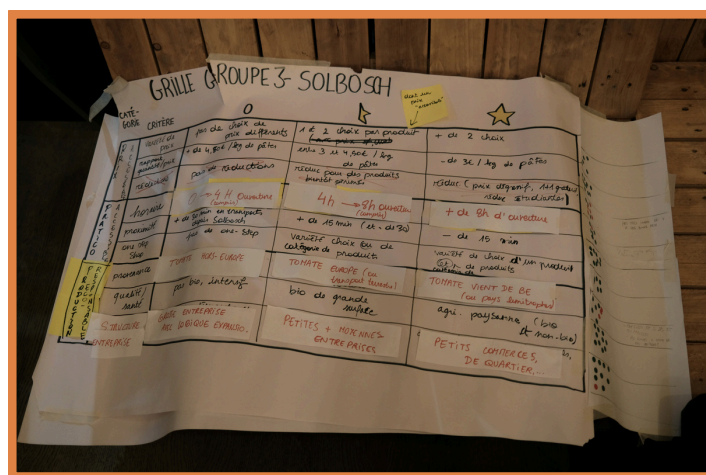 GRILLE GROUPE 3 - SOLBOSCH
dont un
prix
CATÉ-
GORIE CRITÈRE 0
PRIX ACCESSIBLE
variété de
prix
pas de choix de
prix différents
1 à 2 choix par produit
+ de 2 choix
rapport
qualité/prix
+ de 4,50€ / kg de pâtes
entre 3 et 4,50€ / kg
de pâtes
- de 3€ / kg de pâtes
réductions
pas de réductions
réduc pour des produits
bientôt périmés
réduc (prix dégressif, 1+1 gratuit,
réduc étudiante)
PRATICO ACCESSIBLE
horaire
0 → 4H Ouverture
(compris)
4h → 8h ouverture
(compris)
+ de 8h d'ouverture
proximité
+ de 30 min en transports
depuis Solbosch
+ de 15 min (et - de 30)
- de 15 min
one step
shop
pas de one-step
variété choix ou de
catégorie de produits
variété de choix d'un produit
et de produits
PRODUCTION RESPONSABLE
provenance
TOMATE HORS-EUROPE
TOMATE EUROPE (ou
transport
TOMATE VIENT DE BE
(ou pays limitrophes)
qualité/
santé
pas bio, intensif
bio de grande
surface
agri. paysanne (bio
et non-bio)
STRUCTURE
ENTREPRISE
ENTREPRISE
AVEC LOGIQUE EXPANSIO.
PETITES + MOYENNES
ENTREPRISES
PETITS COMMERCES,
DE QUARTIER,...